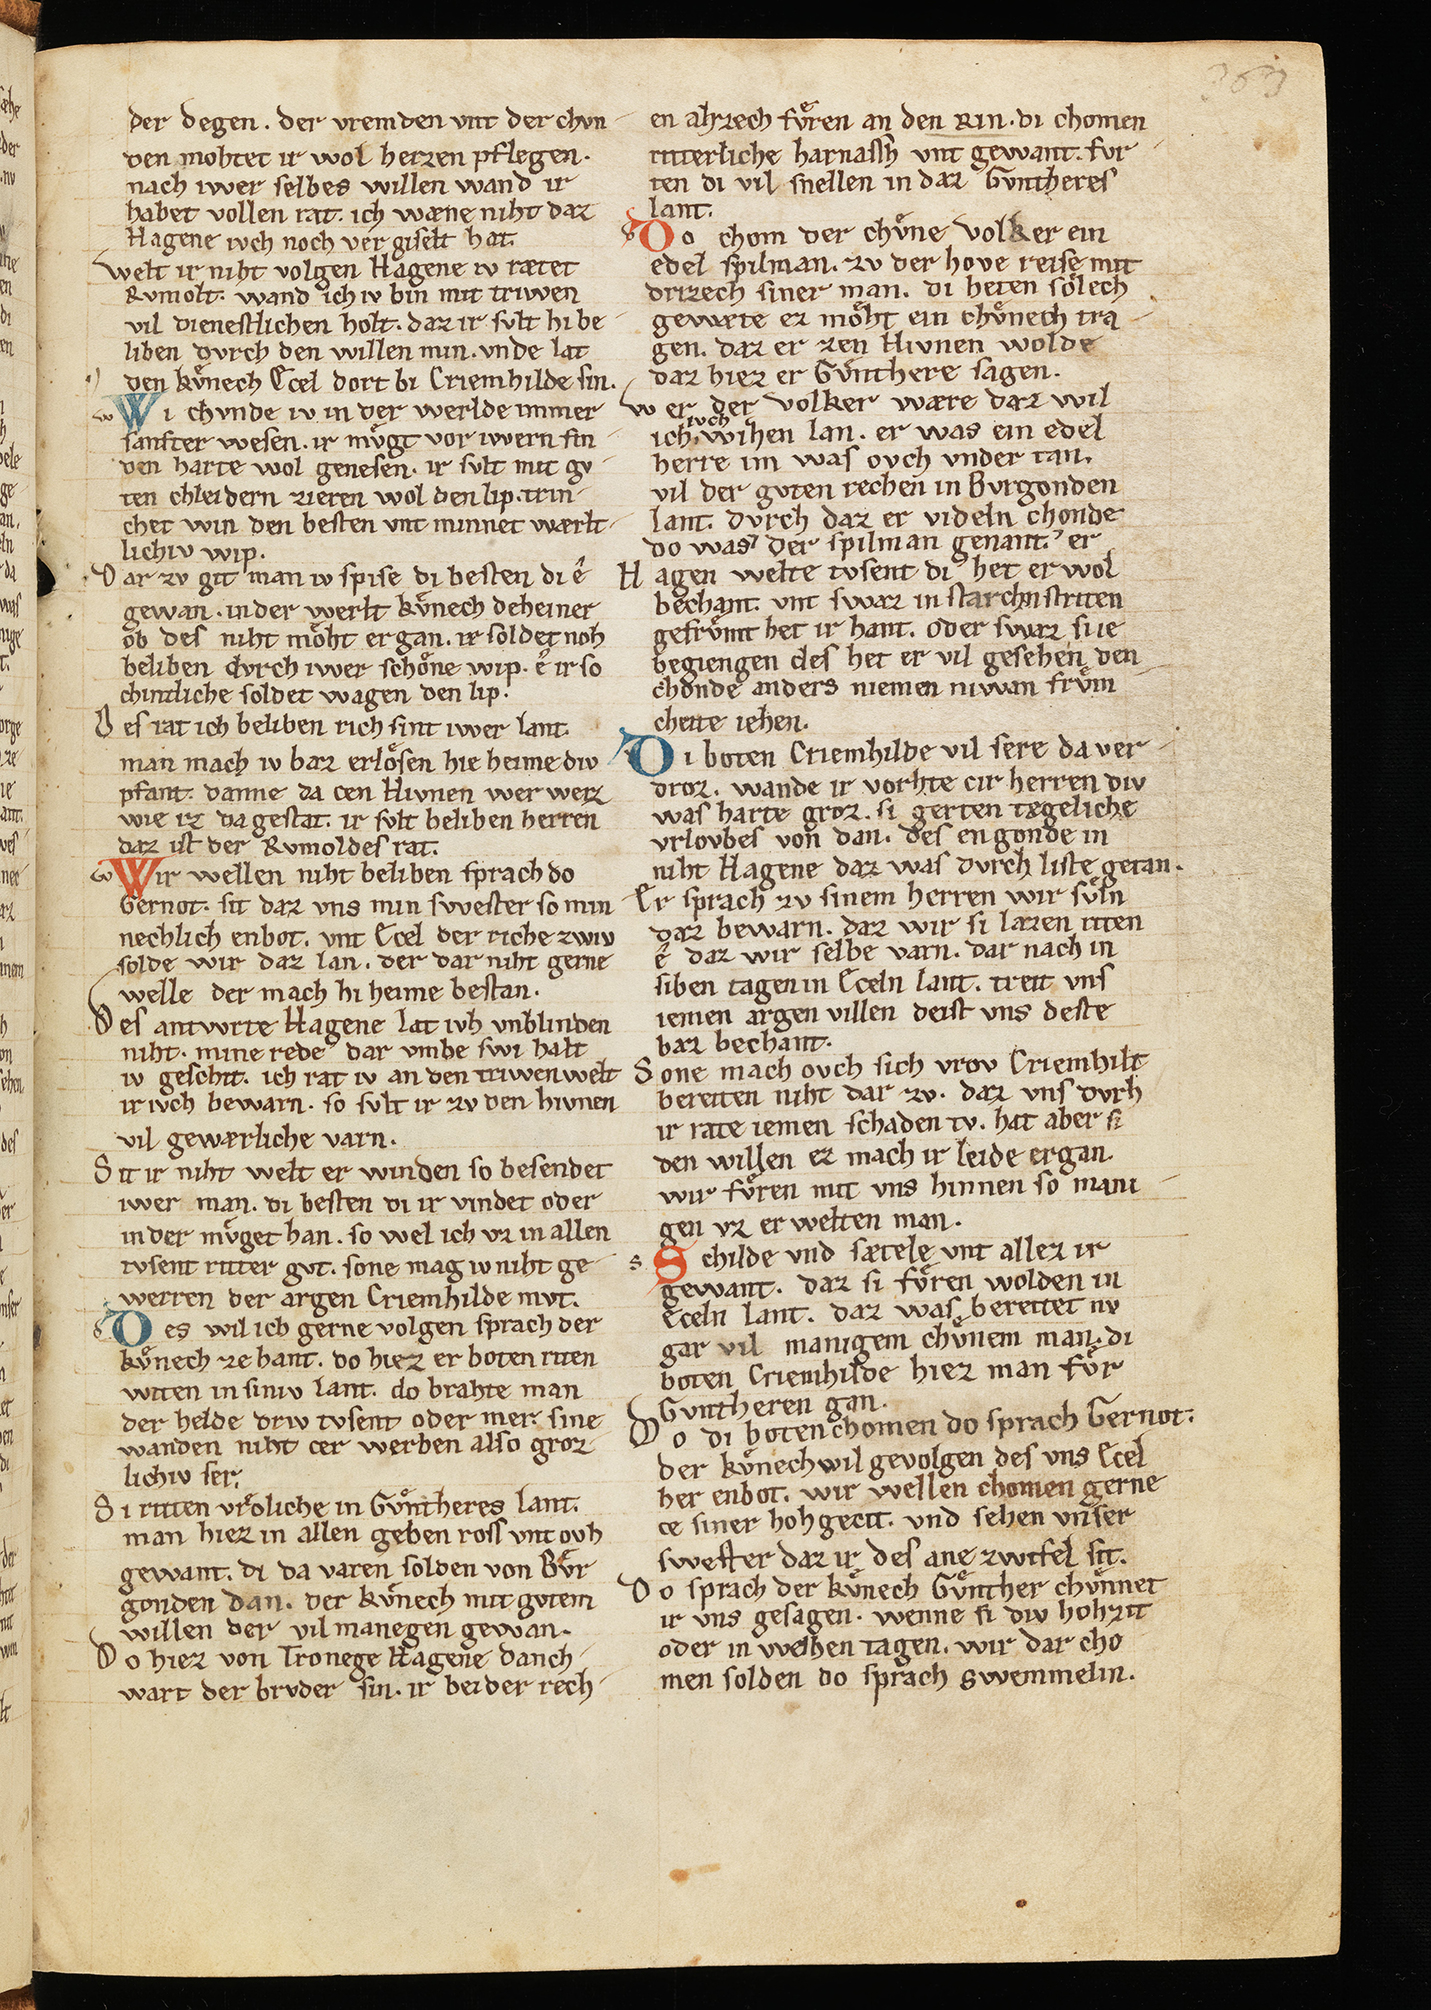 363
der degen. der vremden vnt der chvn
den mohtet ir wol herzen pflegen.
nach iwer selbes willen wand ir
habet vollen rat. ich wæne niht daz
Hagene ivch noch ver giselt hat.
welt ir niht volgen Hagene iv rætet
Rvmolt. wand ich iv bin mit triwen
vil dienestlichen holt. daz ir svlt hi be
liben dvrch den willen min. vnde lat
den kůnech Ecel dort bi Criemhilde sin.
Wi chvnde iv in der werlde immer
sanfter wesen. ir mvͤgt vor iwern fin
den harte wol genesen. ir svlt mit gv
ten chleidern zieren wol den lip. trin
chet win den besten vnt minnet wærlt
lichiv wip.
Dar zv git man iv spise di besten di ê
gewan. in der werlt kvͤnech deheiner
ob des niht moͤht ergan. ir soldet noh
beliben dvrch iwer schoͤne wip. ê ir so
chintliche soldet wagen den lip.
Des rat ich beliben rich sint iwer lant.
man mach iv baz erloͤsen hie heime div
pfant. danne da cen Hivnen wer weiz
wie iz da gestat. ir svlt beliben herren
daz ist der Rvmoldes rat.
Wir wellen niht beliben sprach do
Gernot. sit daz vns min swester so min
nechlich enbot. vnt Ecel der riche zwiv
solde wir daz lan. der dar niht gerne
welle der mach hi heime bestan.
Des antvrte Hagene lat ivh vnblinden
niht. mine rede dar vmbe swi halt
iv geschit. ich rat iv an den triwen welt
ir ivch bewarn. so svlt ir zv den hivnen
vil gewærliche varn.
Sit ir niht welt er winden so besendet
iwer man. di besten di ir vindet oder
inder mvͤget han. so wel ich vz in allen
tvsent ritter gvt. sone mag iv niht ge
werren der argen Criemhilde mvt.
Des wil ich gerne volgen sprach der
kvͤnech ze hant. do hiez er boten riten
witen in siniv lant. do brahte man
der helde driv tvsent oder mer. sine
wanden niht cer werben also groz
lichiv ser.
Si riten vroͤliche in Gvͤntheres lant.
man hiez in allen geben ross vnt ovh
gewant. di da varen solden von Bvͤr
gonden dan. der kvͤnech mit gvtem
willen der vil manegen gewan.
Do hiez von Tronege Hagene danch
wart der brvder sin. ir beider rech
en ahzech fvͤren an den Rin. di chomen
ritterliche harnassh vnt gewant. fvr
ten di vil snellen in daz Gvntheres
lant.
Do chom der chvͤne Volker ein
edel spilman. zv der hove reise mit
drizech siner man. di heten soͤlech
gewæte ez moͤht ein chvͤnech tra
gen. daz er zen Hivnen wolde
daz hiez er Gvͤnthere sagen.
wer der Volker wære daz wil
ich ivch wizzen lan. er was ein edel
herre im was ovch vnder tan.
vil der gvten rechen in Bvrgonden
lant. dvrch daz er videln chonde
do was der spilman genant. er
Hagen welte tvsent di het er wol
bechant. vnt swaz in starchn striten
gefrvͤmt het ir hant. oder swaz si ie
begiengen des het er vil gesehen den
chonde anders niemen niwan frvͤm
cheite iehen.
Di boten Criemhilde vil sere da ver
droz. wande ir vorhte cir herren div
was harte groz. si gerten tægeliche
vrlovbes von dan. des engonde in
niht Hagene daz was dvrch liste getan.
Er sprach zv sinem herren wir svͤln
daz bewarn. daz wir si lazen riten
ê daz wir selbe varn. dar nach in
siben tagen in Eceln lant. treit vns
iemen argen willen deist vns deste
baz bechant.
Sone mach ovch sich vrov Criemhilt
bereiten niht dar zv. daz vns dvrh
ir rate iemen schaden tv. hat aber si
den willen ez mach ir leide ergan.
wir fvͤren mit vns hinnen so mani
gen vz er welten man.
Schilde vnd sætele vnt allez ir
gewant. daz si fvͤren wolden in
Eceln lant. daz was bereitet nv
gar vil manigem chvͤnem man. di
boten Criemhilde hiez man fvͤr
Gvntheren gan.
Do di boten chomen do sprach Gernot.
der kvͤnech wil gevolgen des vns Ecel
her enbot. wir wellen chomen gerne
ce siner hohgecit. vnd sehen vnser
swester daz ir des ane zwifel sit.
Do sprach der kvͤnech Gvͤnther chvͤnnet
ir vns gesagen. wenne si div hohzit
oder in welhen tagen. wir dar cho
men solden do sprach Swemmelin.